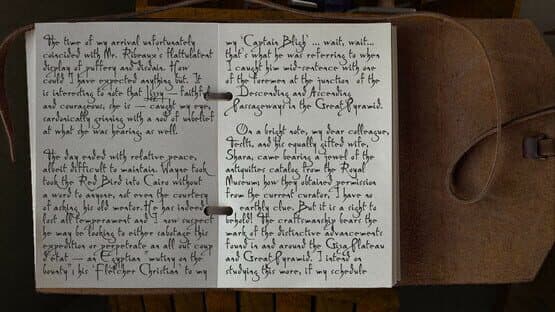 The time of my arrival unfortunately
coincided with Mr. Ribeaux's flattulatent
display of puffery and disdain. How
could I have expected anything but. It
is interesting to note that Issy — faithful
and courageous; she is — caught my eye,
sardonically grinning with a nod of unbelief
at what she was hearing as well.
The day ended with relative peace,
albeit difficult to maintain. Wayne took
took the Red Bird into Cairo without
a word to anyone, not even the courtesy
of asking his old mentor. He has indeed
lost all temperament and I now suspect
he may be looking to either sabotage this
expedition or perpetrate an all out coup
d'état — an Egyptian "mutiny on the
bounty"; his 'Fletcher Christian' to my
my 'Captain Bligh' ... wait, wait...
that's what he was referring to when
I caught him mid-sentence with one
of the foremen at the junction of the
Descending and Ascending
Passageway in the Great Pyramid.
On a bright note, my dear colleague,
and his equally gifted wife,
Shara, came bearing a jewel of the
antiquities catalog from the Royal
Museum; how they obtained permission
from the current curator, I have no
earthly clue. But it is a sight to
behold! The craftsmanship bears the
mark of the distinctive advancements
found in and around the Giza Plateau
and Great Pyramid. I intend on
studying this more, if my schedule